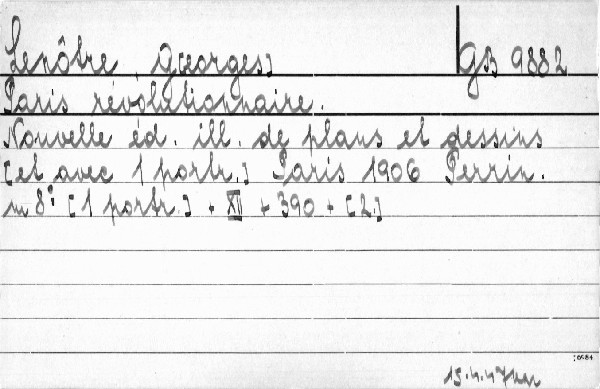 Lenôtre G[eorges] GB 9882
Paris révolutionnaire.
Nouvelle éd. ill. de plans et dessins
[et avec 1 portr.] Paris 1906 Perrin.
m 8° [1 portr.] + XII + 390 + [2]
15.4.47